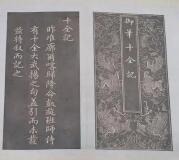 御筆十全記
十全記
昨准廓爾喀歸降命凱旋班師詩
有十全大武揚之句蓋引而未發
茲特敘而記之